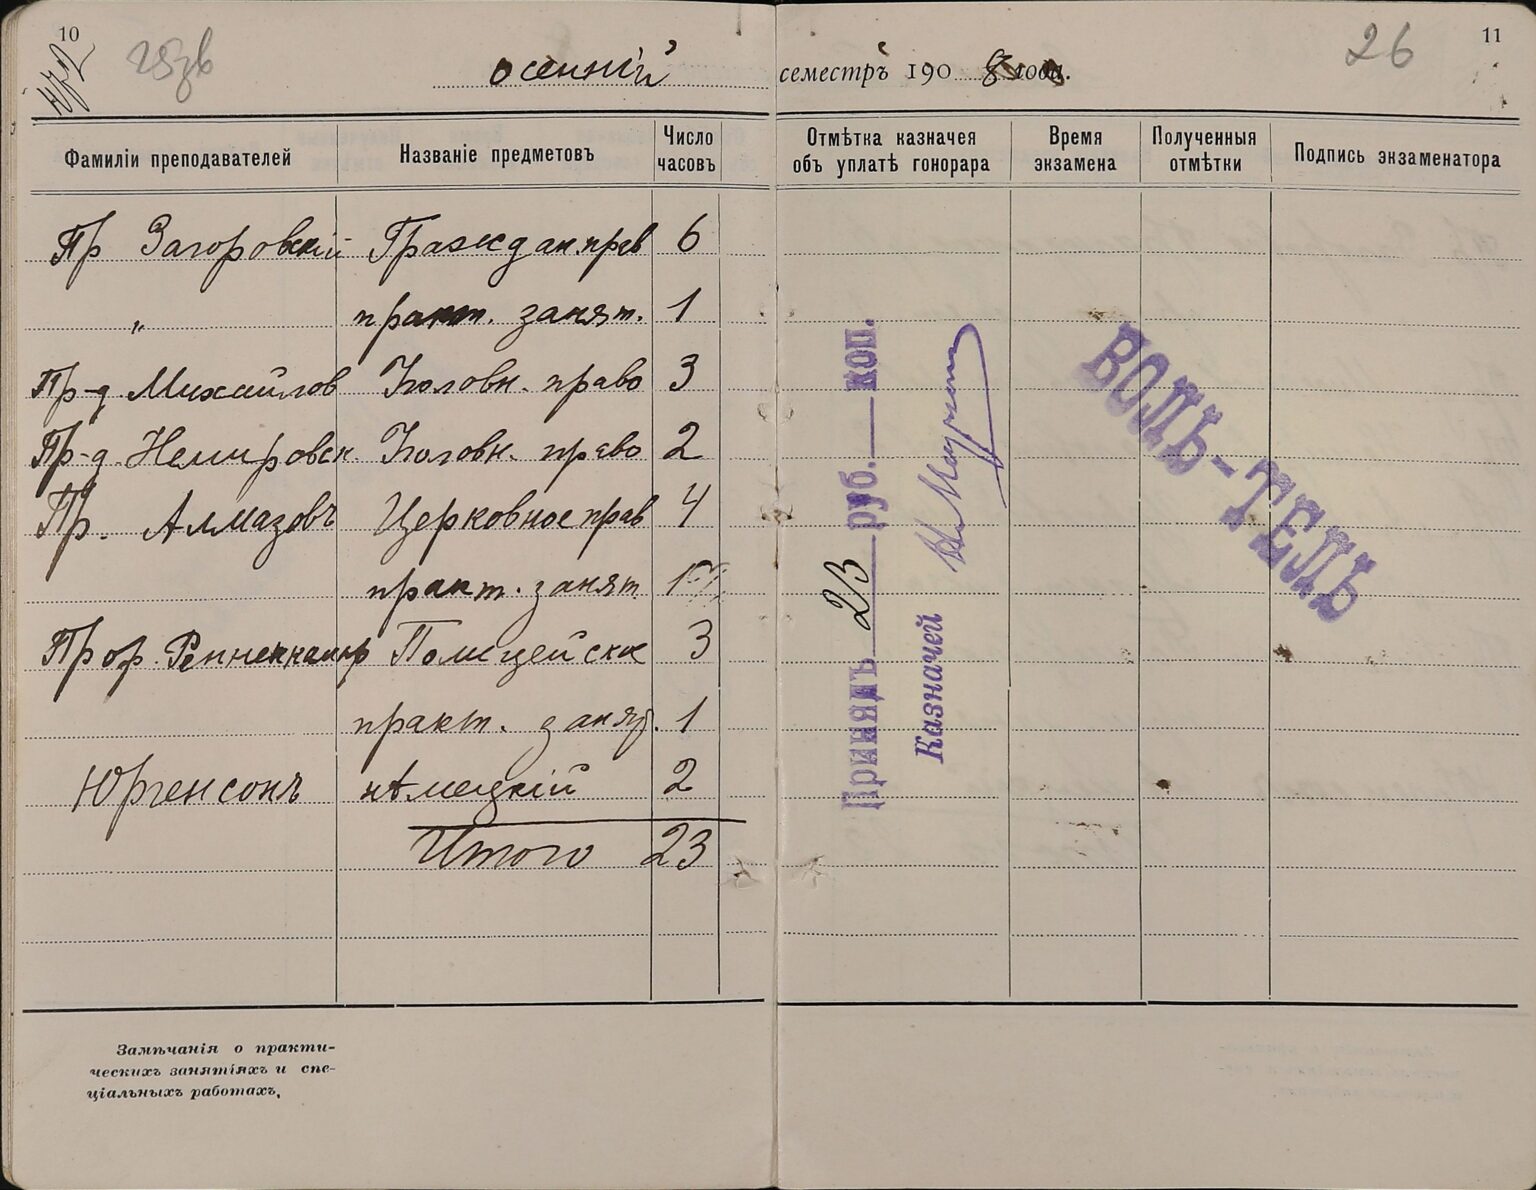 10
осенній семестръ 1908 года.
26
11
Фамиліи преподавателей Названіе предметовъ Число часовъ Отмѣтка казначея объ уплатѣ гонорара Время экзамена Полученныя отмѣтки Подпись экзаменатора
Пр Загоровскій Граждан прав 6
„ практ. занят. 1
Пр-д. Михайлов Уголовн. право 3
Пр-д. Немировск. Уголовн. право 2
Пр. Алмазовъ Церковное прав 4
практ. занят 1
Проф. Ренненкампф Полицейское 3
практ. занят. 1
Юргенсонъ нѣмецкій 2
Итого 23
Принялъ 23 руб. коп.
Казначей
ВОЛЬ-ТЕЛЬ
Замѣчанія о практи-
ческихъ занятіяхъ и спе-
ціальныхъ работахъ.